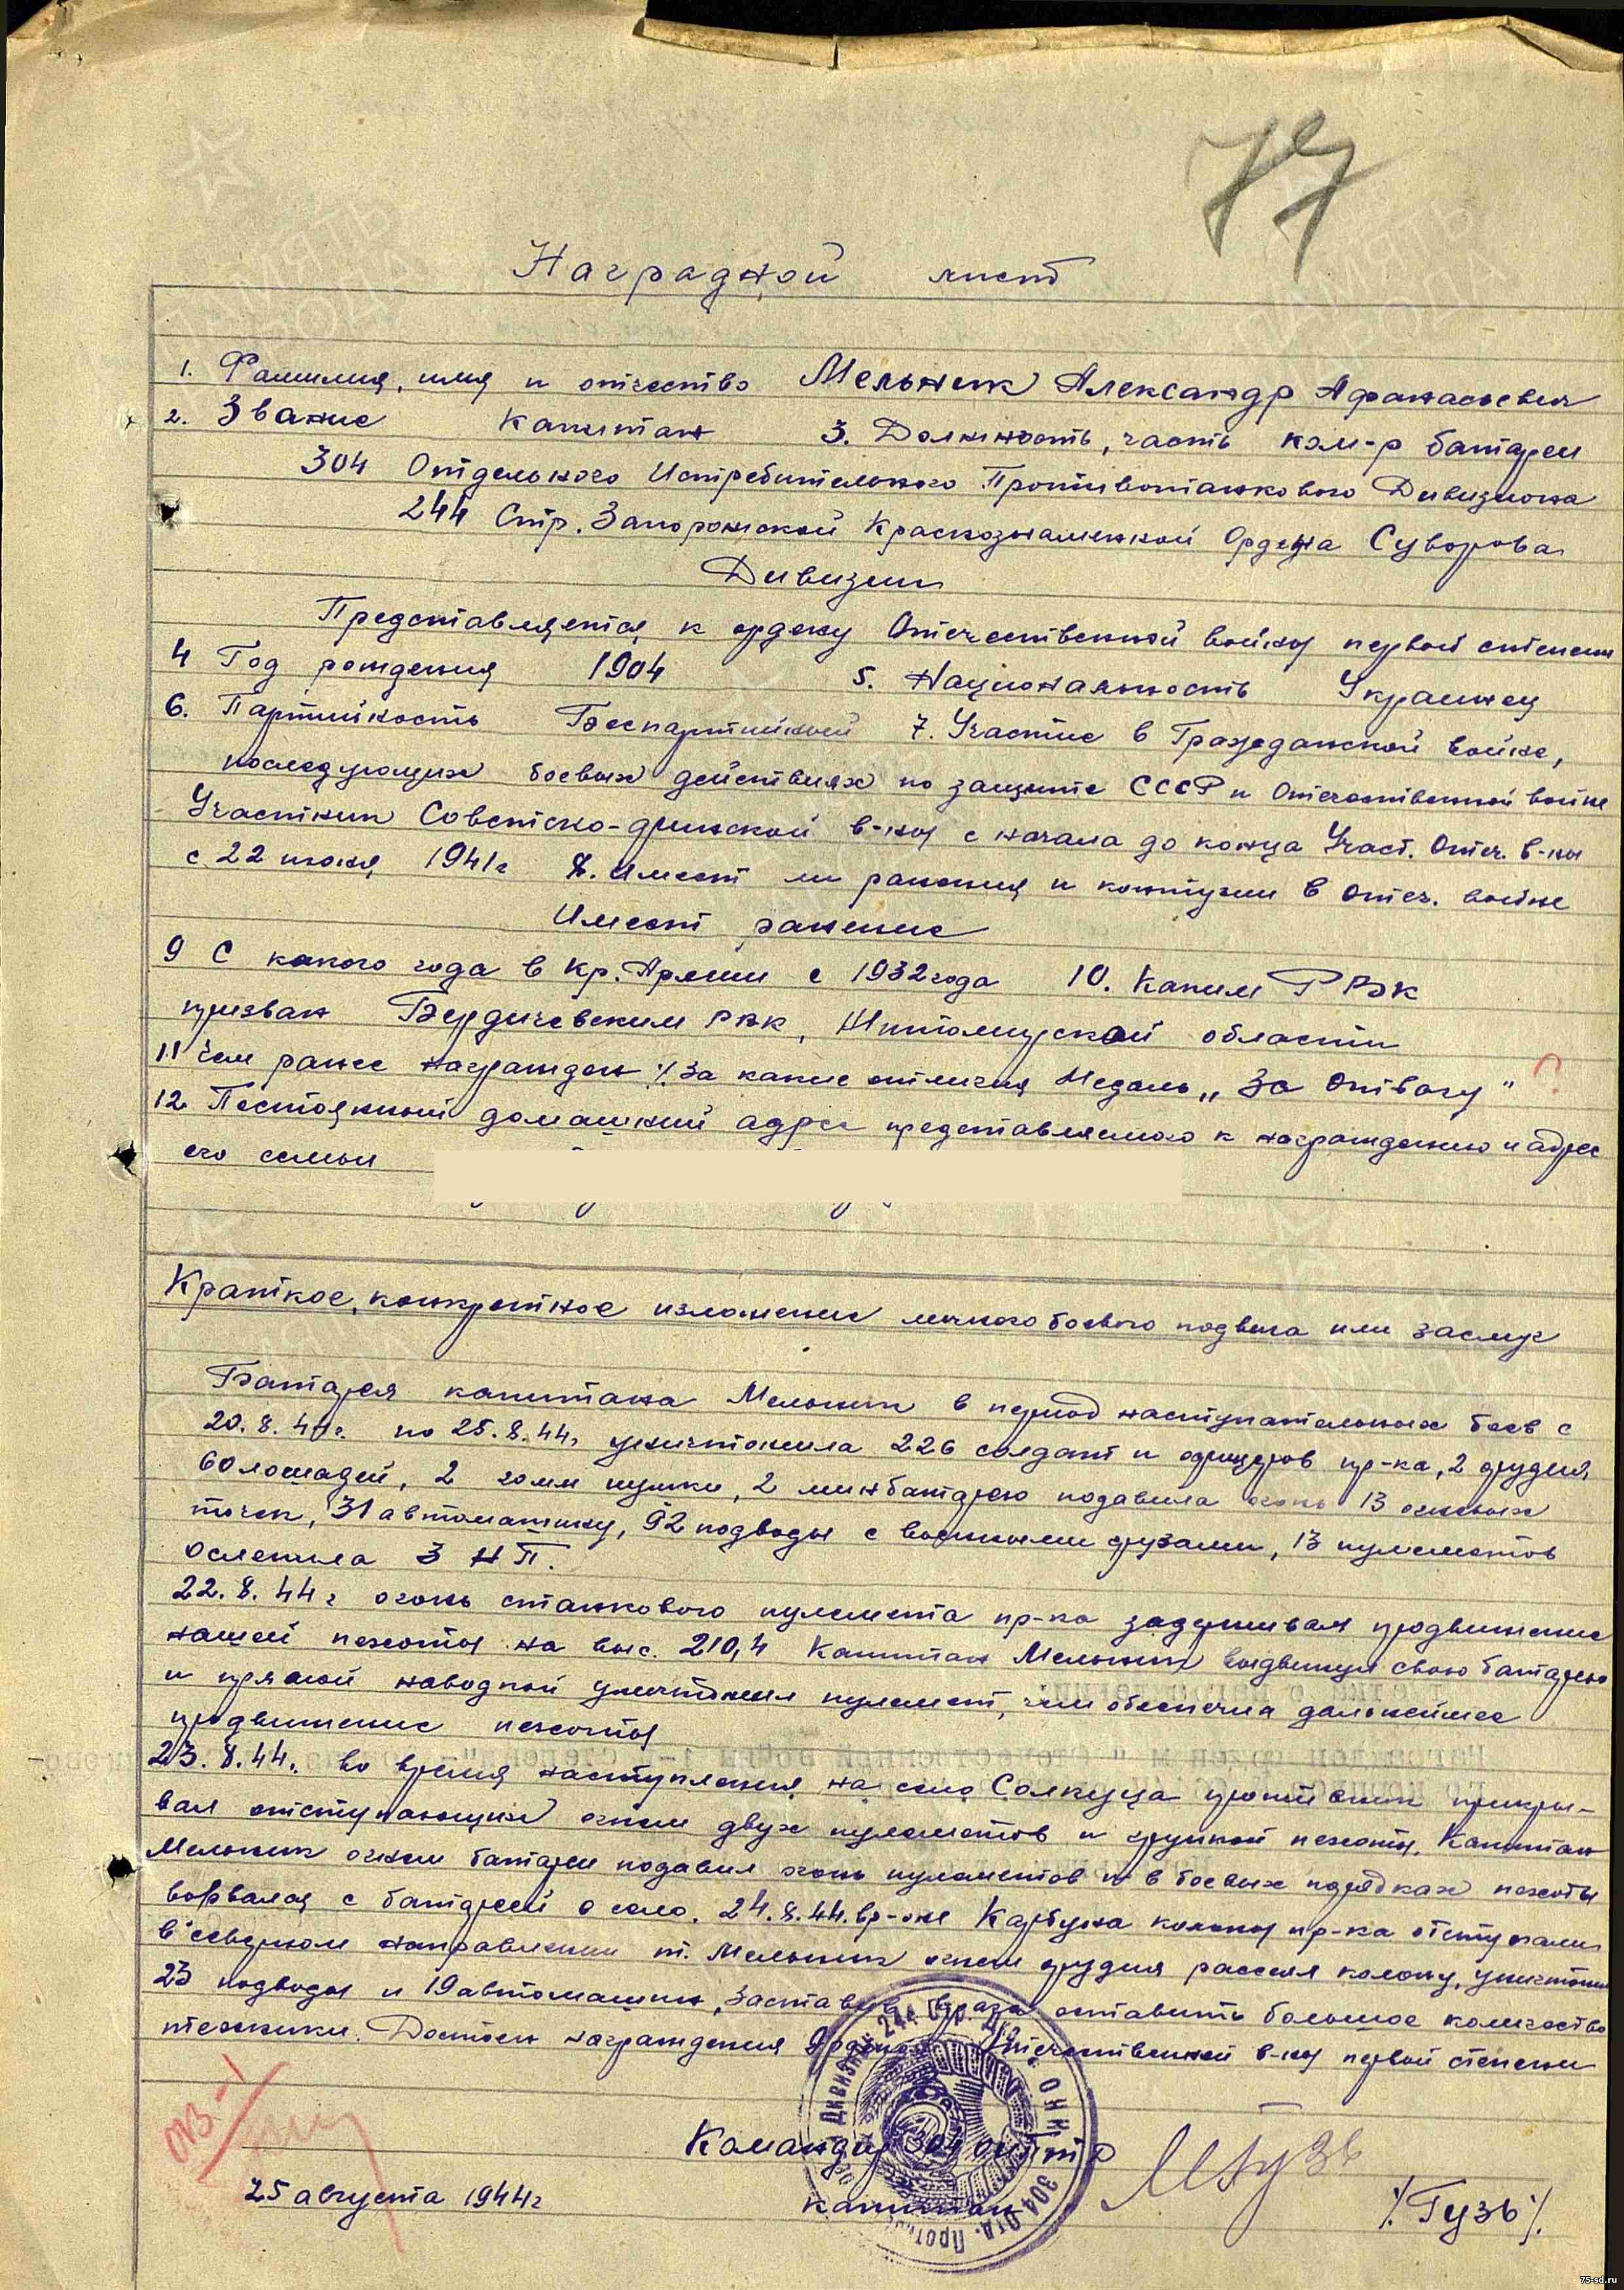 77
Наградной лист
1. Фамилия, имя и отчество Мельник Александр Афанасьевич
2. Звание Капитан 3. Должность, часть ком-р батареи
304 Отдельного Истребительного Противотанкового Дивизиона
244 Стр. Запорожской Краснознаменной Ордена Суворова
Дивизии
Представляется к ордену Отечественной войны первой степени
4 Год рождения 1904 5. Национальность Украинец
6. Партийность Беспартийный 7. Участие в Гражданской войне,
последующих боевых действиях по защите СССР и Отечественной войне
Участник Советско-финской в-ны с начала до конца Участ. Отеч. в-ны
с 22 июня 1941г 8. Имеет ли ранения и контузии в отеч. войне
Имеет ранение
9 С какого года в Кр. Армии с 1932 года 10. Каким РВК
призван Бердичевским РВК, Житомирской области
11 Чем ранее награжден /за какие отличия Медаль „За Отвагу" ?
12. Постоянный домашний адрес представляемого к награждению и адрес
его семьи
Краткое, конкретное изложение личного боевого подвига или заслуг
Батарея капитана Мельник в период наступательных боев с
20.8.44г. по 25.8.44г уничтожила 226 солдат и офицеров пр-ка, 2 орудия,
60 лошадей, 2 пушки, 2 минбатарею подавила огонь 13 огневых
точек, 31 автомашину, 92 подводы с военными грузами, 13 пулеметов
Ослепила 3 НП.
22.8.44г огонь станкового пулемета пр-ка задерживал продвижение
нашей пехоты на выс. 210,4 Капитан Мельник выдвинул свою батарею
и прямой наводкой уничтожил пулемет, чем обеспечил дальнейшее
продвижение пехоты
23.8.44г. во время наступления на село Салкуца противник прикры-
вал отступающих огнем двух пулеметов и группой пехоты. Капитан
Мельник огнем батареи подавил огонь пулеметов и в боевых порядках пехоты
ворвался с батареей в село. 24.8.44. в р-оне Карбуна колоны пр-ка отступали
в северном направлении т. Мельник огнем орудия рассеял колону, уничтожил
23 подводы и 19 автомашин, заставив врага оставить большое количество
техники. Достоин награждения Орденом Отечественной в-ны первой степени
ОВ-1
Командир 304 оиптд
25 августа 1944г капитан /Гузь/
75-sd.ru